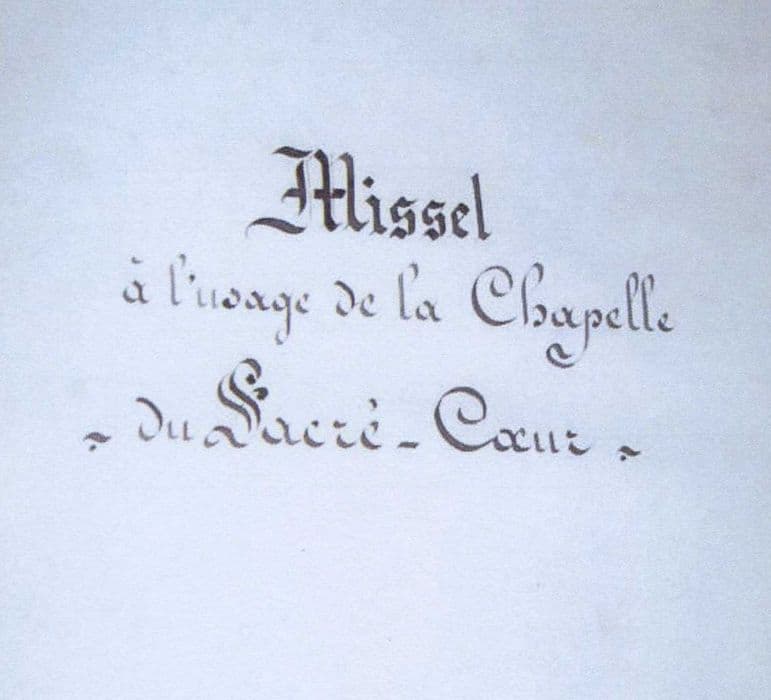 Missel
à l'usage de la Chapelle
~ du Sacré-Cœur ~